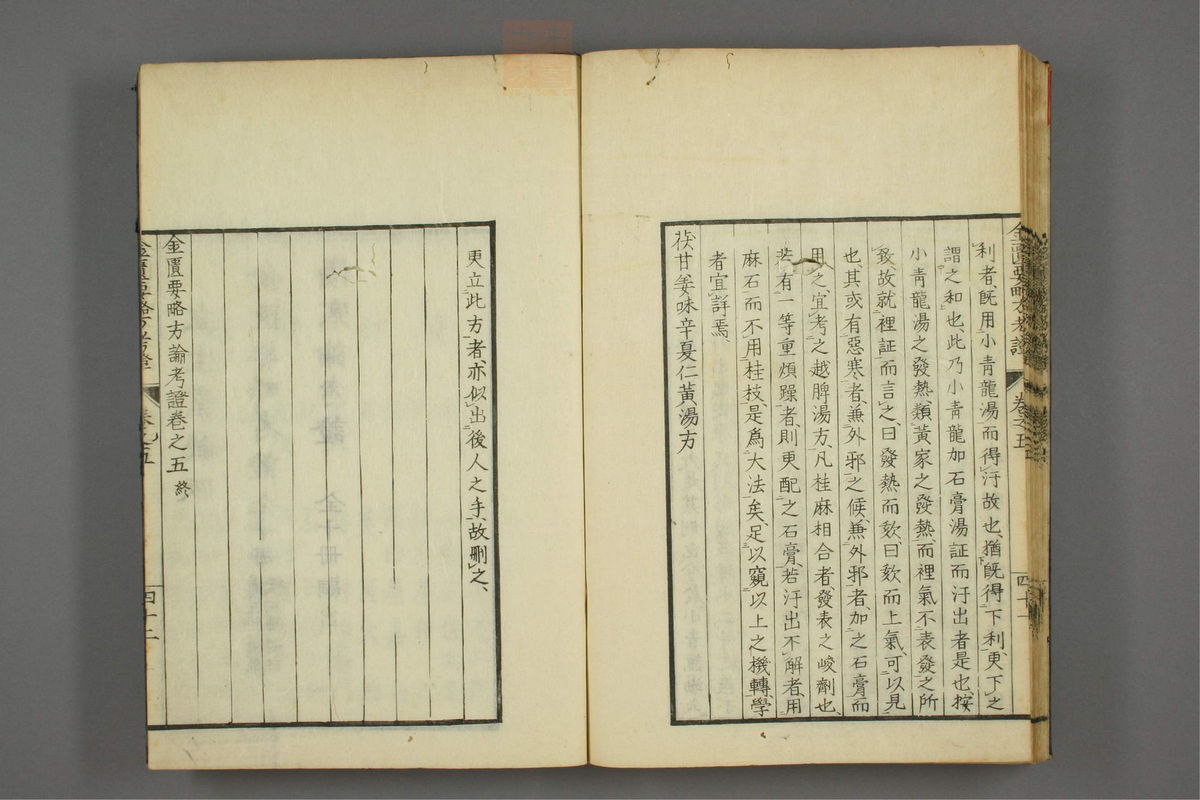 金匱要略方考證 卷之五 四十一
利者、既用小青龍湯而得汗故也、猶既得下利、更下之
謂之和也、此乃小青龍加石膏湯証而汗出者是也、按
小青龍湯之發熱、類黃家之發熱、而裡氣不表發之所
致、故就裡証而言之、曰發熱而欬、曰欬而上氣、可以見
也、其或有惡寒者、兼外邪之候、兼外邪者、加之石膏而
用之、宜考之越脾湯方、凡桂麻相合者發表之峻劑也、
若有一等重煩躁者、則更配之石膏、若汗出不解者、用
麻石而不用桂枝、是爲大法矣、足以窺以上之機轉、學
者宜詳焉、
茯甘姜味辛夏仁黃湯方
更立此方者、亦似出後人之手、故刪之、
金匱要略方論考證卷之五 終
金匱要略方考證 卷之五 四十二